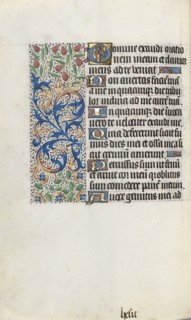 Domine exaudi oratio
nem meam et clamor
meus ad te veniat
Non avertas faciem tuam
a me in quacumque die tribu
lor inclina ad me aurem tuam
In quacumque die invoca
vero te velociter exaudi me
Quia defecerunt sicut fu
mus dies mei et ossa mea si
cut cremium aruerunt
Percussus sum ut fenum
et aruit cor meum quia oblitus
sum comedere panem meum
A voce gemitus mei ad